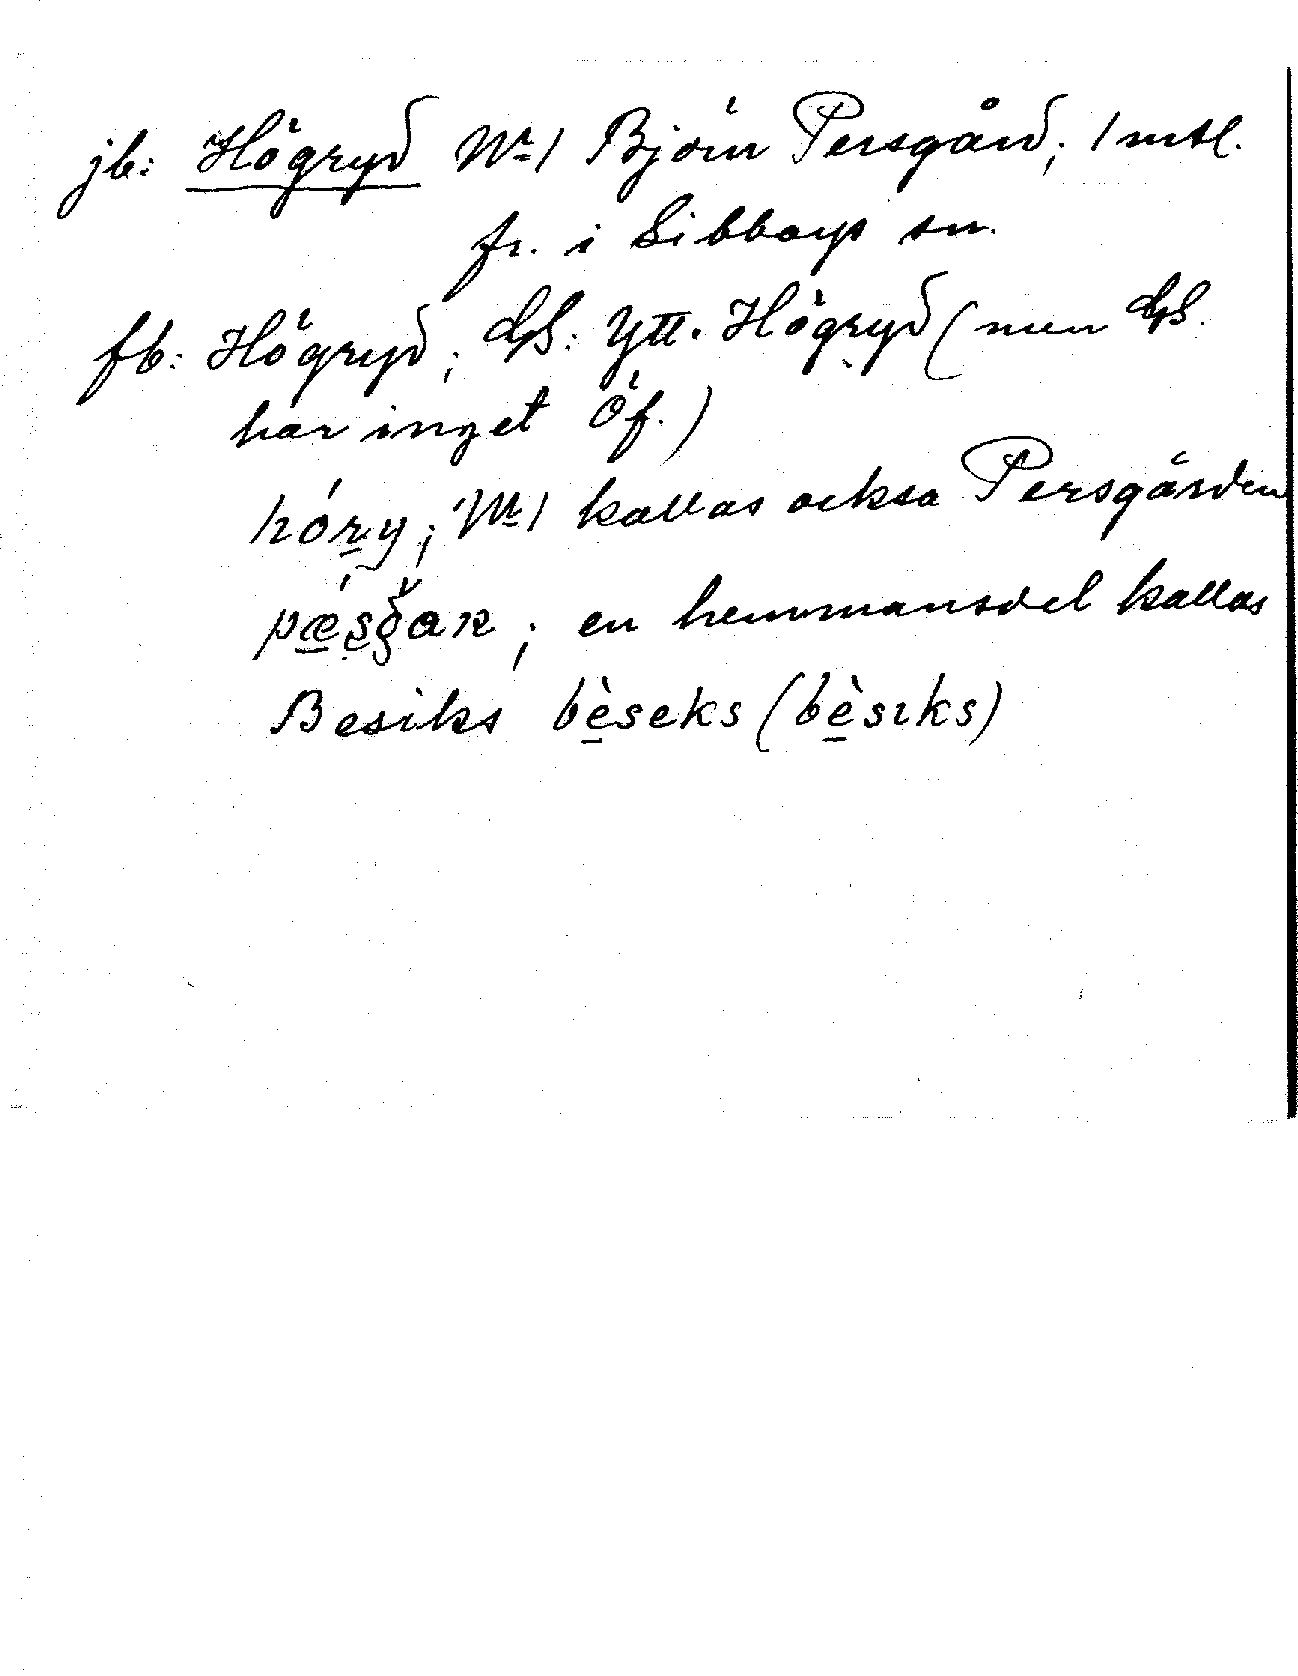 jb: Högryd No 1 Björn Persgård; 1 mtl.
fr. i Sibbarps sn.
fb: Högryd; GS: Ytt. Högryd (men GS.
har inget Öf.)
hóry; No 1 kallas också Persgården
; en hemmansdel kallas
Besiks bèseks (bèsıks)